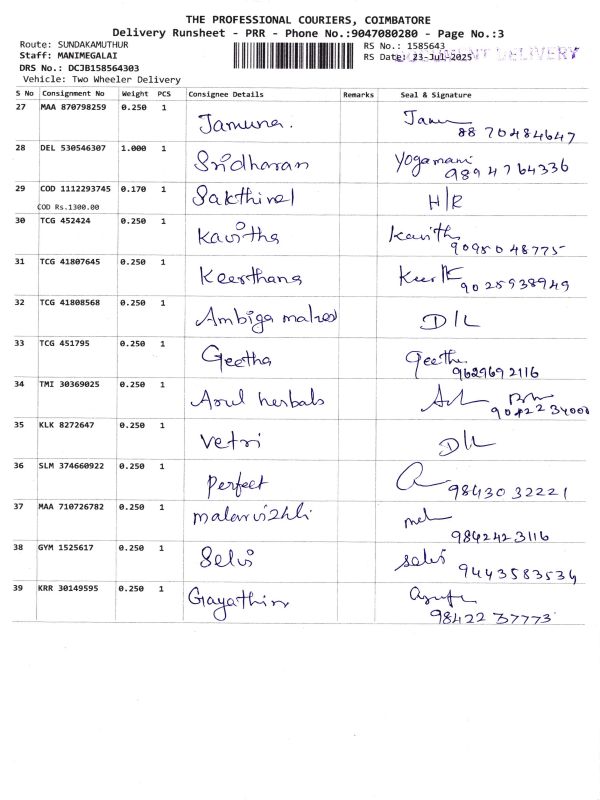 THE PROFESSIONAL COURIERS, COIMBATORE
Delivery Runsheet - PRR - Phone No.:9047080280 - Page No.:3
Route: SUNDAKAMUTHUR
RS No.: 1585643
Staff: MANIMEGALAI
RS Date: 23-Jul-2025
DELIVERY
DRS No.: DCJB158564303
Vehicle: Two Wheeler Delivery
S No Consignment No Weight PCS Consignee Details Remarks Seal & Signature
27 MAA 870798259 0.250 1 Jamuna.
88 70484647
28 DEL 530546307 1.000 1 Sridharan Yogamani
9894764336
29 COD 1112293745 0.170 1 Sakthivel H/R
COD Rs.1300.00
30 TCG 452424 0.250 1 Kavitha Kavitha
90950 48775
31 TCG 41807645 0.250 1 Keerthana
9025938949
32 TCG 41808568 0.250 1 Ambiga D/L
33 TCG 451795 0.250 1 Geetha Geetha
9629692116
34 TMI 30369025 0.250 1 Arul herbals
35 KLK 8272647 0.250 1 Vetri D/L
36 SLM 374660922 0.250 1 Perfect
98430 32221
37 MAA 710726782 0.250 1 malarvizhli
9842423116
38 GYM 1525617 0.250 1 Selvi selvi
9443583534
39 KRR 30149595 0.250 1
98422 37773